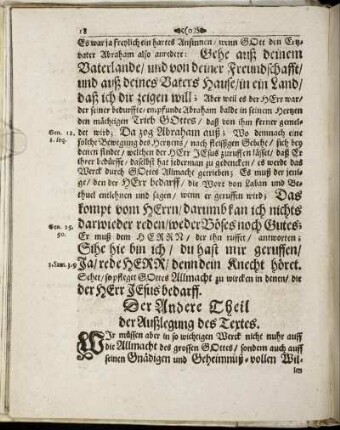 18
Es war ja freylich ein hartes Ansinnen / wenn GOtt den Ertz-
vater Abraham also anredete: Gehe auß deinem
Vaterlande / und von deiner Freundschafft /
und auß deines Vaters Hause / in ein Land /
daß ich dir zeigen will; Aber weil es der HErr war /
der seiner bedurffte / empfunde Abraham balde in seinem Hertzen
den mächtigen Trieb GOttes / daß von ihm ferner gemel-
Gen. 12.
det wird; Da zog Abraham auß; Wo demnach eine
solche Bewegung des Hertzens / nach fleissigem Gebehte / sich bey
denen findet / welchen der HErr JEsus zuruffen lässet / daß Er
ihrer bedürffe / daselbst hat jedermañ zu gedencken / es werde daß
Werck durch GOttes Allmacht getrieben; Es muß der jeni-
ge / den der HErr bedarff / die Wort von Laban und Be-
thuel entlehnen und sagen / wenn er geruffen wird; Das
kompt vom HErrn / darumb kan ich nichts
Gen. 24.
50.
darwieder reden / weder Böses noch Gutes:
Er muß dem HERRN / der ihn ruffet / antworten;
Sihe hie bin ich / du hast mir geruffen /
1. Sam. 3.
Ja / rede HERR / denn dein Knecht höret.
Sehet / so pfleget GOttes Allmacht zu wircken in denen / die
der HErr JEsus bedarff.
Der Andere Theil
der Außlegung des Textes.
WIr müssen aber in so wichtigen Werck nicht nuhr auff
die Allmacht des grossen GOttes / sondern auch auff
seinen Gnädigen und Geheimnüß-vollen Wil-
len